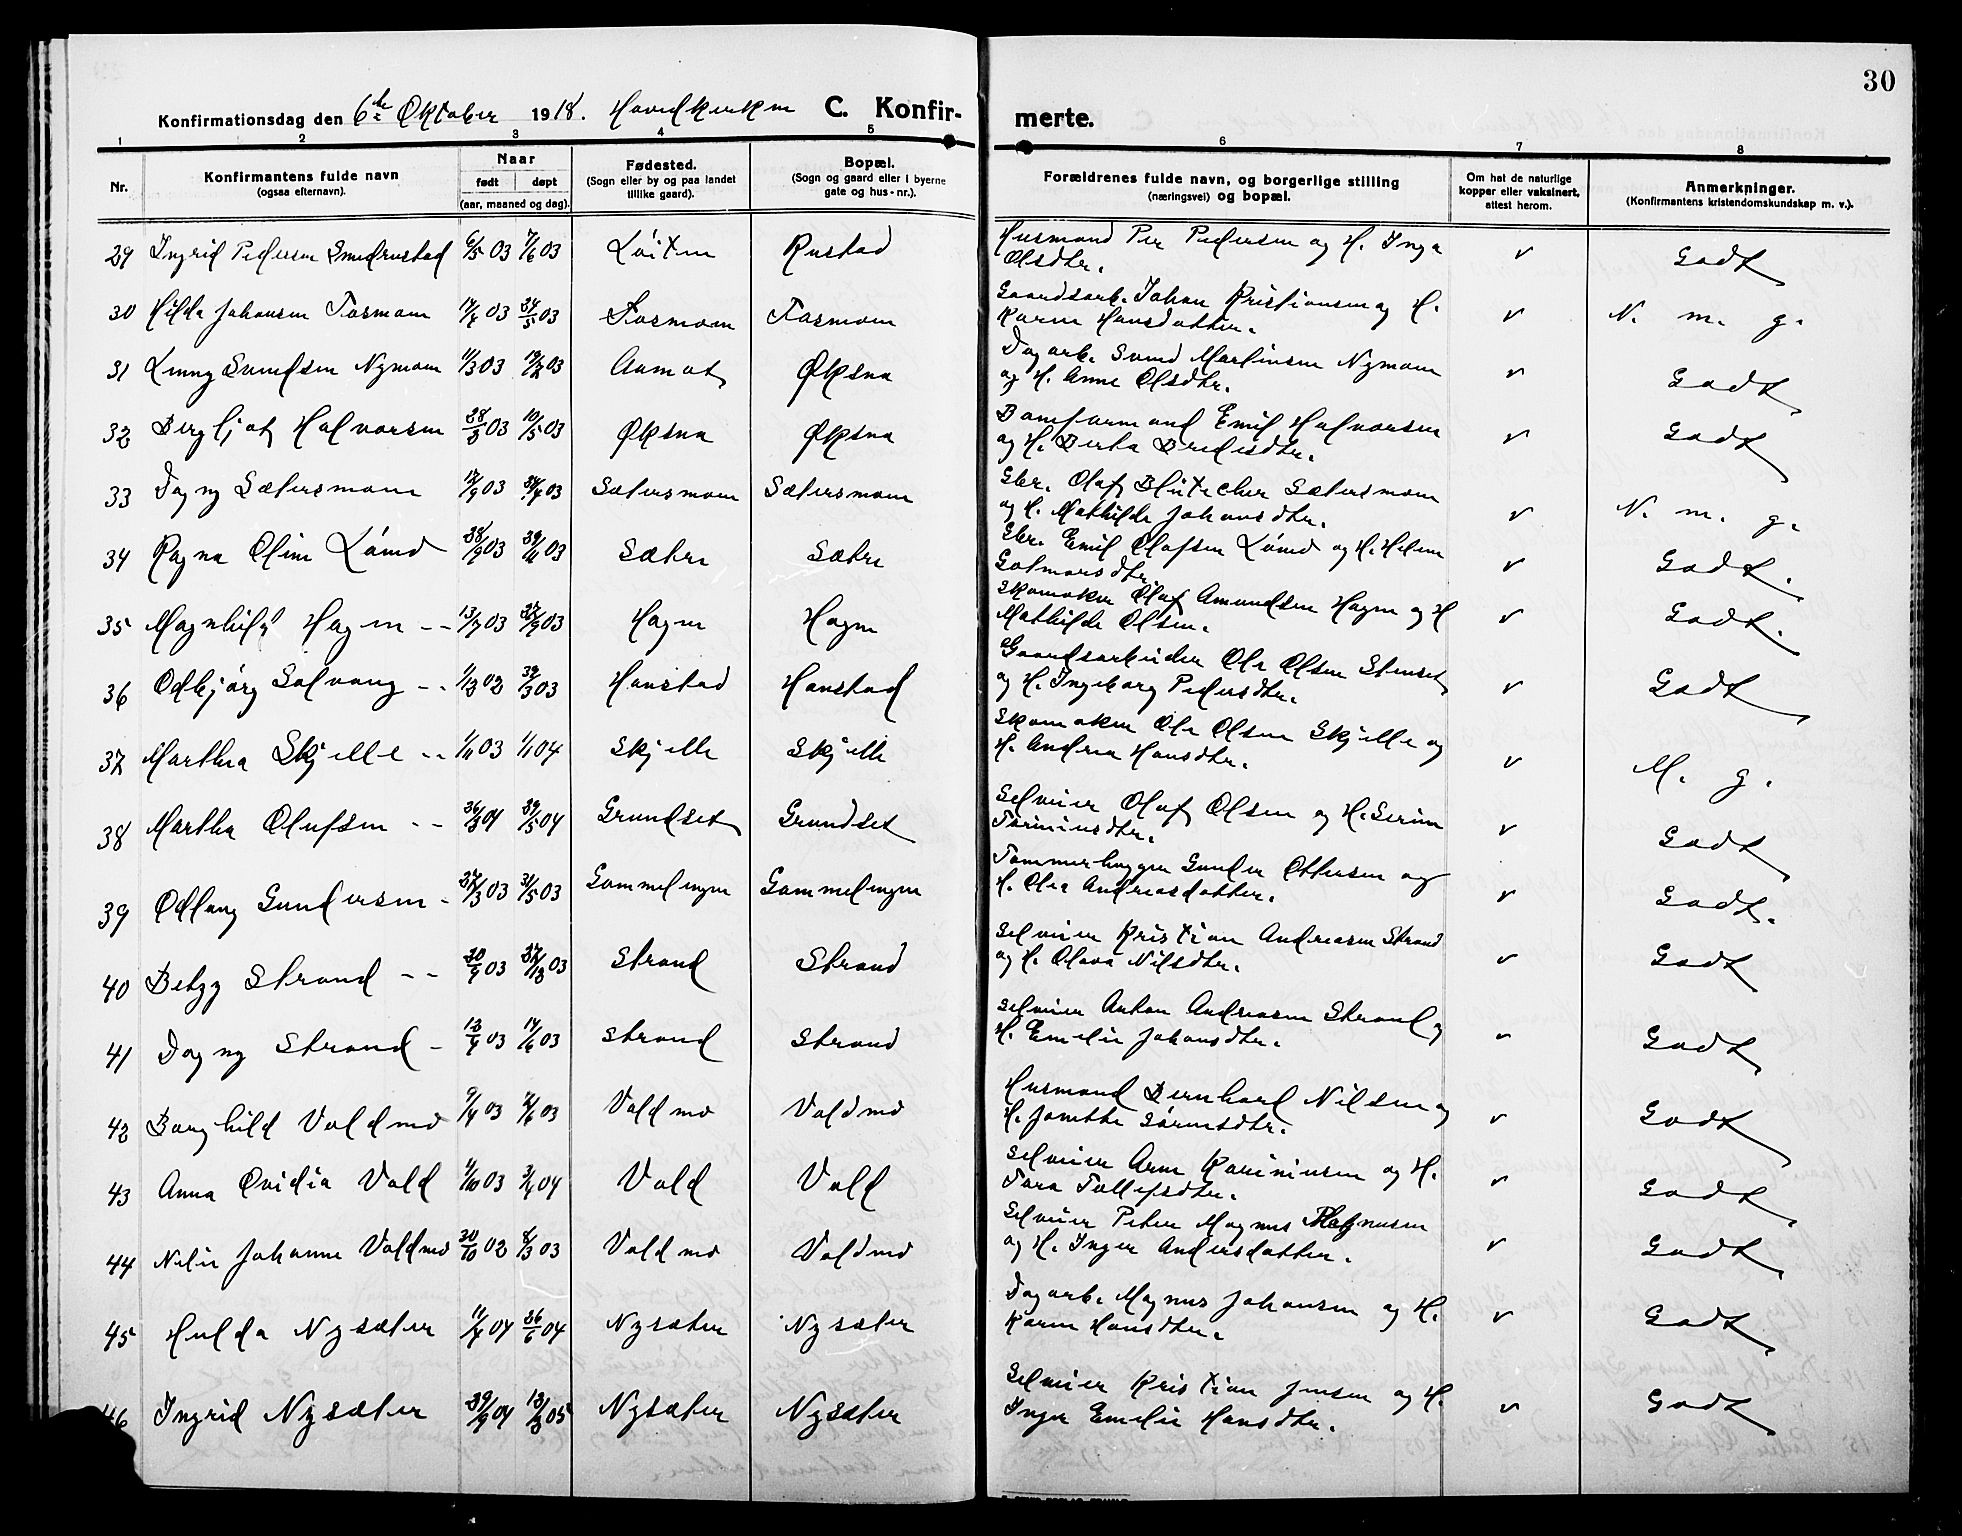 30
Konfirmationsdag den 6te Oktober 1918. Hovedkirken C. Konfirmerte.
1 2 3 4 5 6 7 8
Nr. Konfirmantens fulde navn (ogsaa efternavn). Naar født døpt (aar, maaned og dag). Fødested. (Sogn eller by og paa landet tillike gaard). Bopæl. (Sogn og gaard eller i byerne gate og hus-nr.). Forældrenes fulde navn, og borgerlige stilling (næringsvei) og bopæl. Om hat de naturlige kopper eller vaksinert, attest herom. Anmerkninger. (Konfirmantens kristendomskundskap m. v.).
29 Ingrid Pedersen Smedrustad 6/5 03 7/6 03 Løiten Rustad Husmand Per Pedersen og H. Inga Olsdtr. v Godt
30 Hilda Johansen Fosmoen 03 24/5 03 Fosmoen Fosmoen Gaardsarb. Johan Kristiansen og H. Karen Hansdatter. v N. m. g.
31 Svendsen Nymoen 11/3 03 03 Aamot Øksna Dagarb. Svend Martinsen Nymoen og H. Anne Olsdtr. v Godt
32 Bergljot Halvorsen 28/3 03 10/5 03 Øksna Øksna Emil Halvorsen og H. Berta v Godt
33 Dagny Sætersmoen 03 03 Sætersmoen Sætersmoen Gbr. Olaf Sætersmoen og H. Mathilde Johansdtr. v N. m. g.
34 Ragna Oline Lømo 28/9 03 03 Sætre Sætre Gbr. Emil Olafsen Lømo og H. Helene v Godt.
35 Magnhild Hagen -- 13/7 03 27/9 03 Hagen Hagen Skomaker Olaf Amundsen Hagen og H Mathilde Olsen. v Godt.
36 Odbjørg Solvang -- 1/12 02 03 Hanstad Hanstad Gaardsarbeider Ole Olsen Stenset og H. Ingeborg Pedersdtr. v Godt
37 Martha Skjelle -- 1/11 03 1/1 04 Skjelle Skjelle Skomaker Ole Olsen Skjelle og H. Andrea Hansdtr. v M. g.
38 Martha Olufsen -- 04 29/5 04 Grundset Grundset Selveier Oluf Olsen og H. Serine v Godt
39 Odlaug Gundersen - 27/3 03 31/5 03 Gammelengen Gammelengen Tømmerhugger Gunder Ottersen og H. Olea Andreasdatter. v Godt.
40 Betzy Strand -- 03 27/12 03 Strand Strand Selveier Kristian Andreasen Strand og H. Olava Nilsdtr. v Godt
41 Dagny Strand - 03 14/6 03 Strand Strand Selveier Anton Andreasen Strand og H. Emelie Johansdtr. v Godt
42 Borghild Voldmo 9/4 03 03 Voldmo Voldmo Husmand Bernhard Nilsen og H. Jonette Sørensdtr. v Godt
43 Anna Ovidia Vold 4/10 03 3/4 04 Vold Vold Selveier Arne Kariniusen og H. Tora Tollefsdtr. v Godt
44 Nelie Johanne Voldmo 20/10 02 8/3 03 Voldmo Voldmo Selveier Peter Magnus Magnusen og H. Inger Andersdatter. v Godt
45 Hulda Nysæter 11/4 04 26/6 04 Nysæter Nysæter Dagarb. Magnus Johansen og H. Karen Hansdtr. v Godt
46 Ingrid Nysæter 29/9 04 05 Nysæter Nysæter Selveier Kristian Jensen og H. Inger Emelie Hansdtr. v Godt